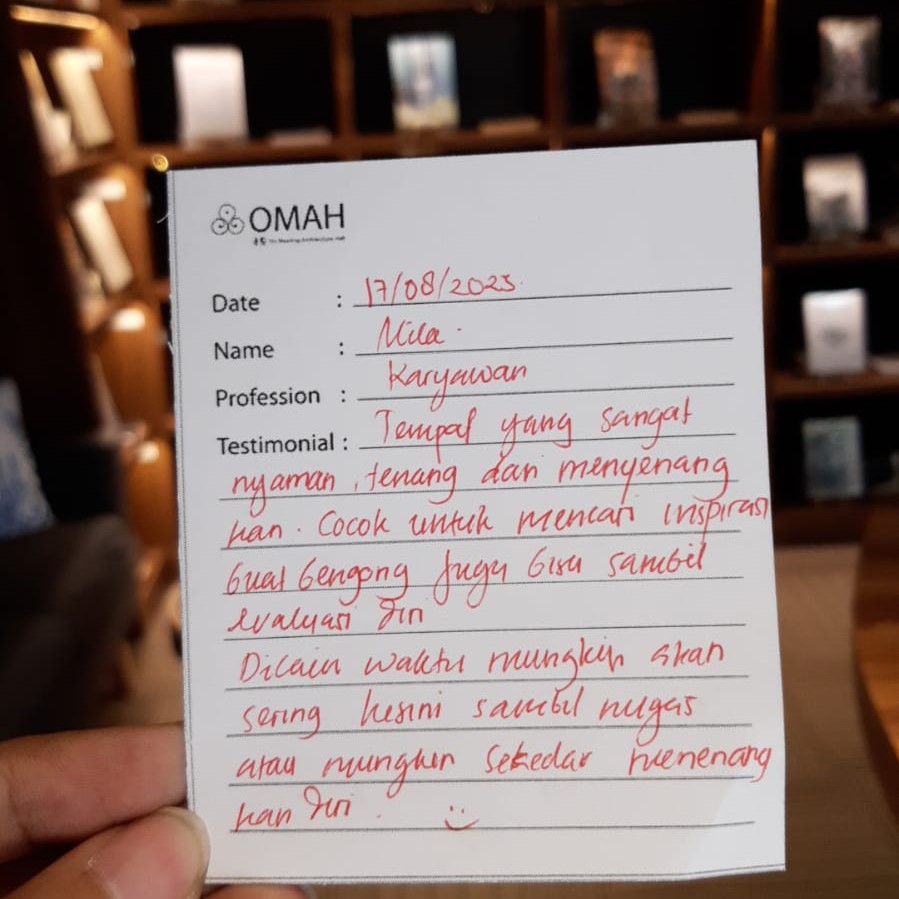 OMAH
Date : 17/08/2023.
Name : Mila.
Profession : Karyawan
Testimonial : Tempat yang sangat
nyaman, tenang dan menyenang
kan. Cocok untuk mencari inspirasi
buat bengong juga bisa sambil
evaluasi diri
Dilain waktu mungkin akan
sering kesini sambil nugas
atau mungkin sekedar menenang
kan diri.